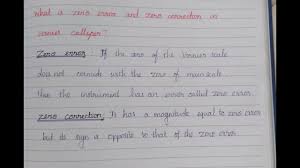 What is zero error and zero correction in
vernier calliper?
Zero error: If the zero of the Vernier scale
does not coincide with the zero of main scale
then the instrument has an error called zero error.
zero correction: It has a magnitude equal to zero error
but its sign is opposite to that of the zero error.